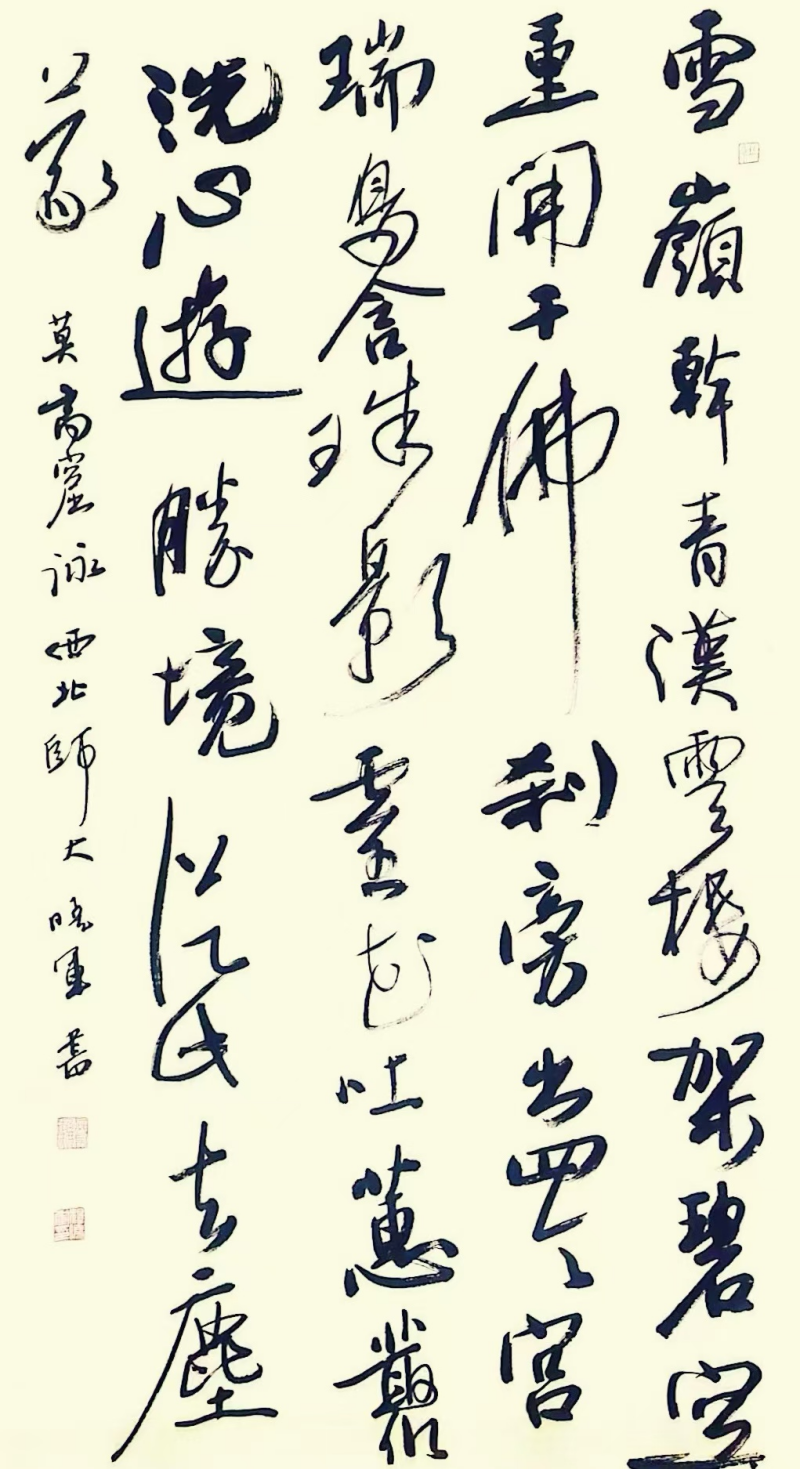 雪嶺幹青漢雲樓架碧空
重開千佛刹旁出四天宮
瑞鳥含珠影靈花吐蕙叢
洗心遊勝境從此去塵
蒙 莫高窟詠 西北師大曉軍書